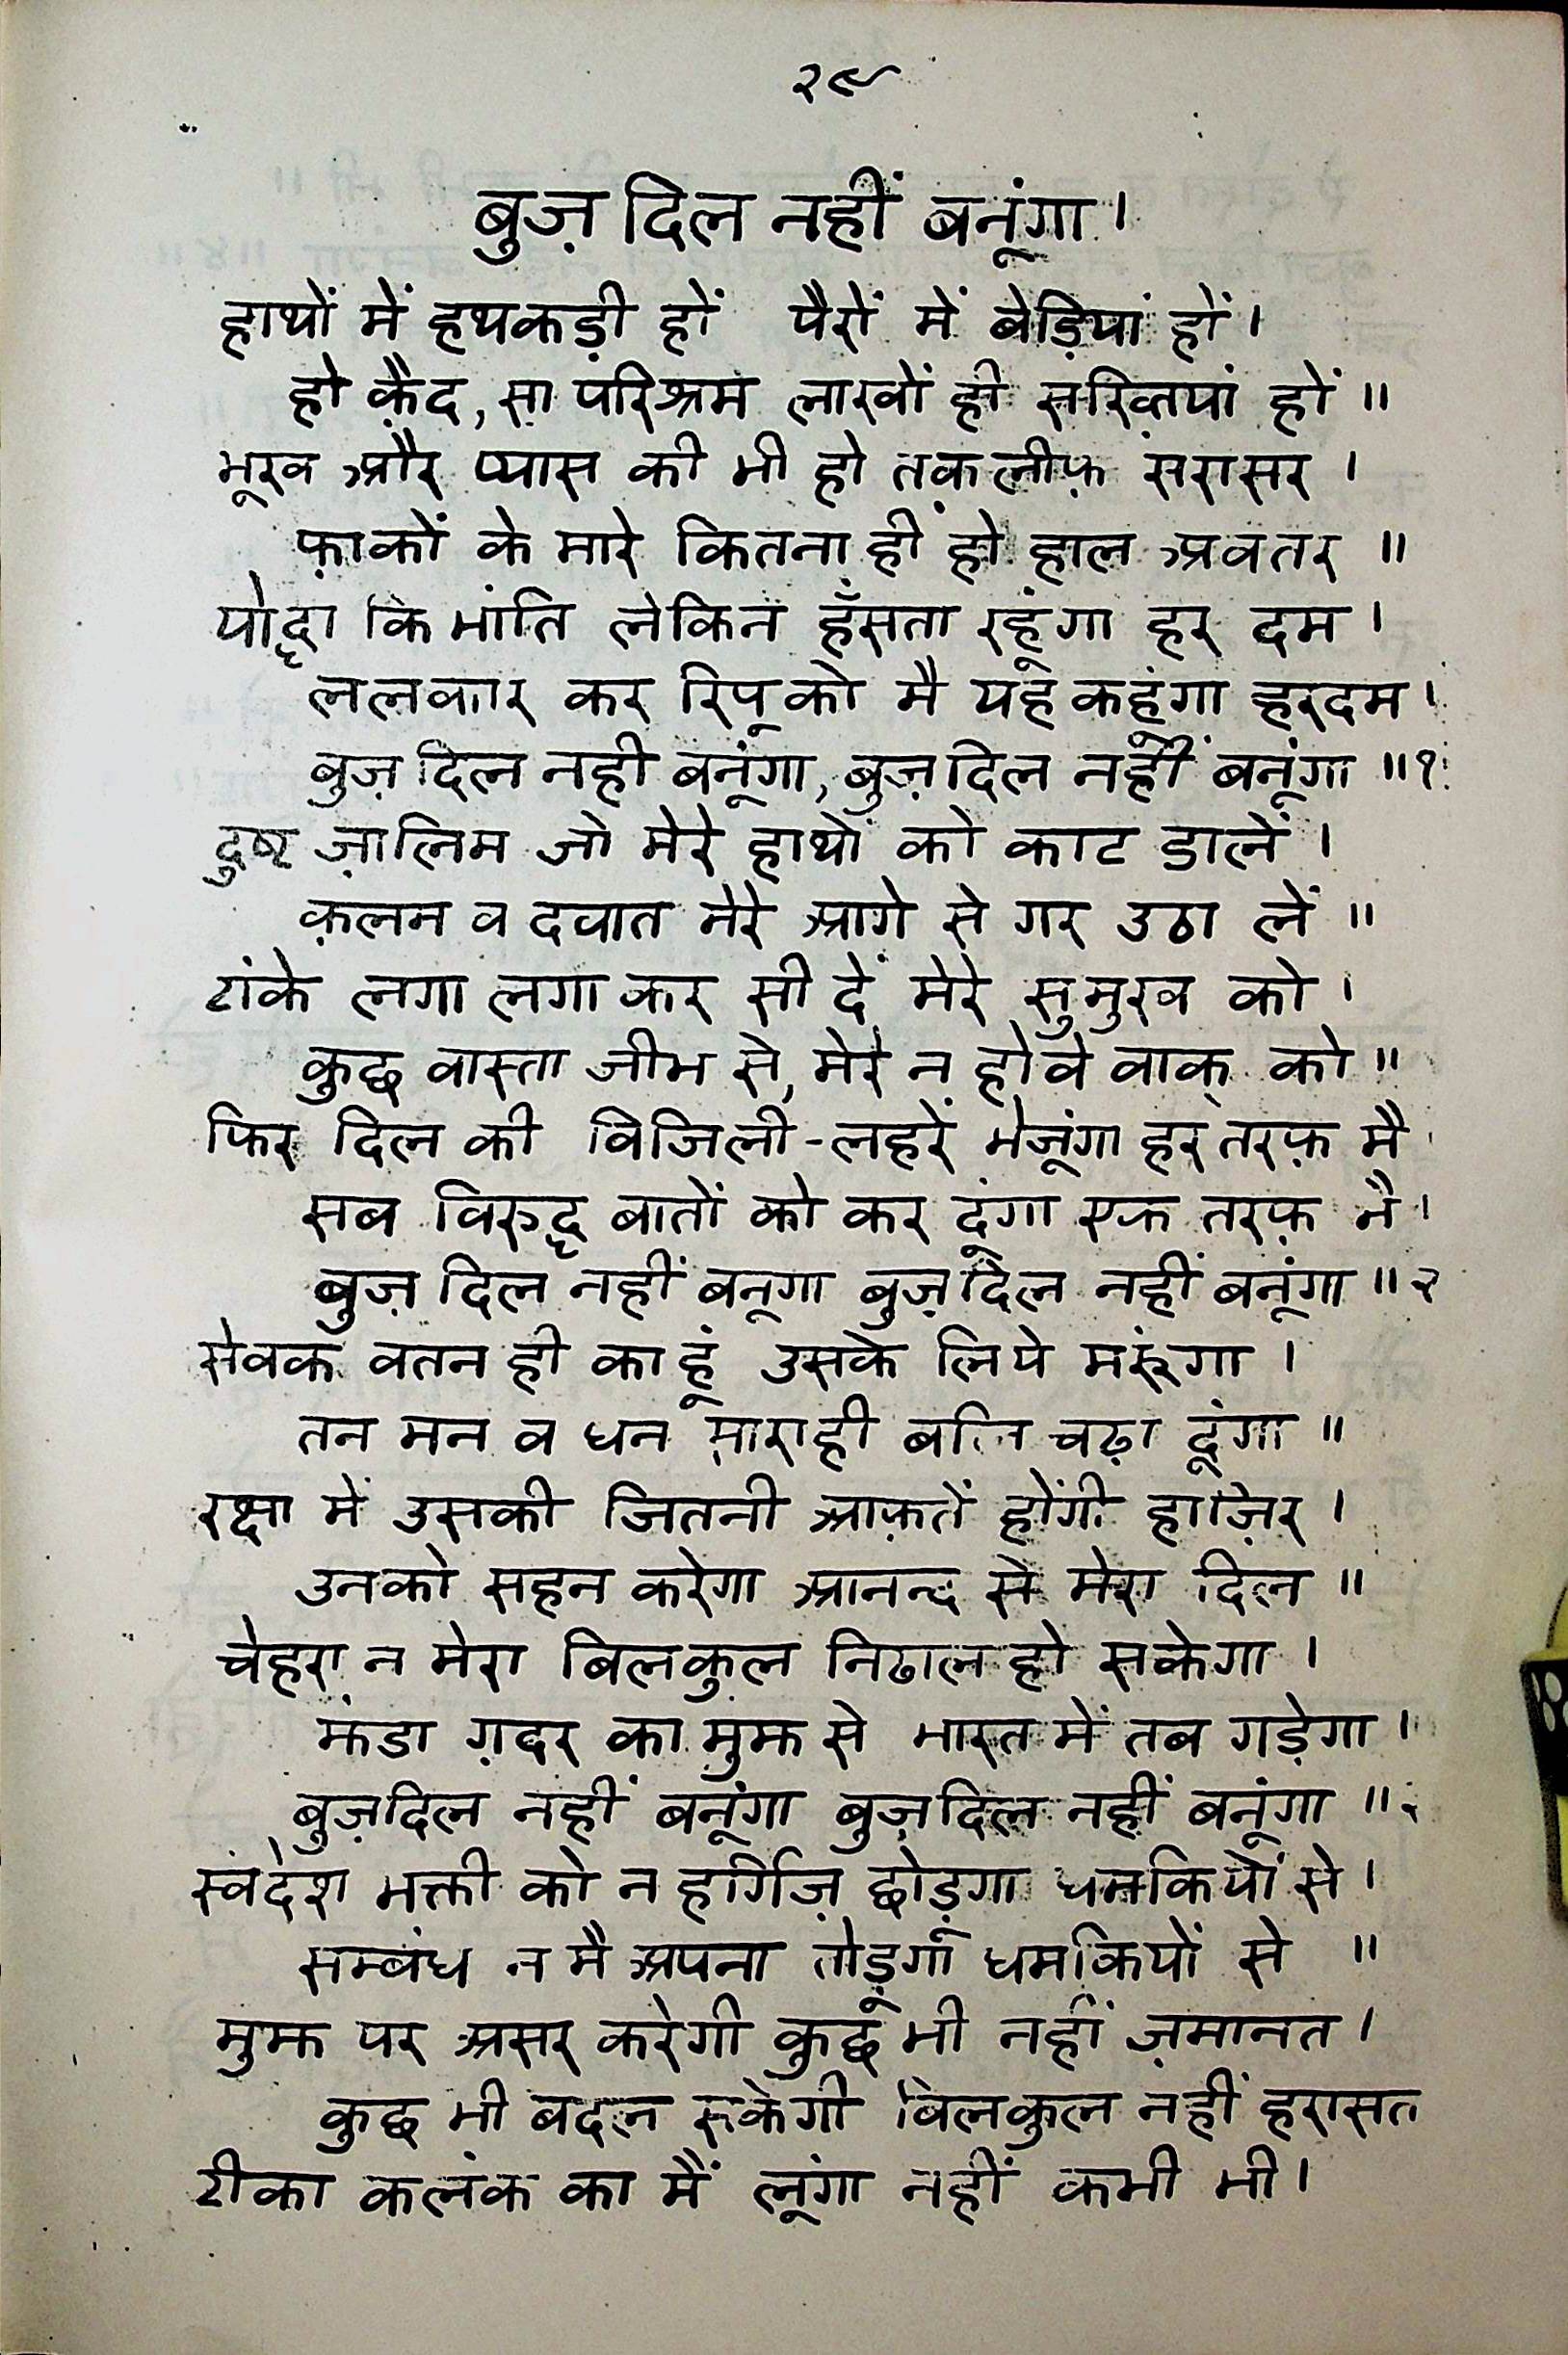 २९
बुज़दिल नहीं बनूंगा।
हाथों में हथकड़ी हों पैरों में बेड़ियां हों।
हो क़ैद, सा परिश्रम लाखों ही सख़्तियां हों॥
भूख और प्यास की भी हो तक़लीफ़ सरासर।
फ़ाकों के मारे कितना ही हो हाल अवतर॥
योद्धा कि भांति लेकिन हँसता रहूंगा हर दम।
ललकार कर रिपू को मै यह कहूंगा हरदम।
बुज़दिल नही बनूंगा, बुज़दिल नहीं बनूंगा॥१
दुष्ट ज़ालिम जो मेरे हाथों को काट डालें।
क़लम व दवात मेरे आगे से गर उठा लें॥
टांके लगा लगा कर सी दें मेरे सुमुख को।
कुछ वास्ता जीभ से, मेरे न होवे वाक् को॥
फिर दिल की विजिली-लहरें भेजूंगा हर तरफ़ मै
सब विरुद्ध बातों को कर दूंगा एक तरफ़ मै।
बुज़दिल नहीं बनूगा बुज़दिल नहीं बनूंगा॥२
सेवक वतन ही का हूं उसके लिये मरूंगा।
तन मन व धन साराही बलि चढ़ा दूंगा॥
रक्षा में उसकी जितनी आफ़तें होंगी हाज़िर।
उनको सहन करेगा आनन्द से मेरा दिल॥
चेहरा न मेरा बिलकुल निढाल हो सकेगा।
झंडा ग़दर का मुझ से भारत में तब गड़ेगा।
बुज़दिल नहीं बनूंगा बुज़दिल नहीं बनूंगा॥
स्वदेश भक्ती को न हर्गिज़ छोड़ूगा धमकियों से।
सम्बंध न मै अपना तोड़ूगा धमकियों से॥
मुझ पर असर करेगी कुछ भी नहीं ज़मानत।
कुछ भी बदल सकेगी बिलकुल नहीं हरासत
टीका कलंक का मैं लूंगा नहीं कभी भी।